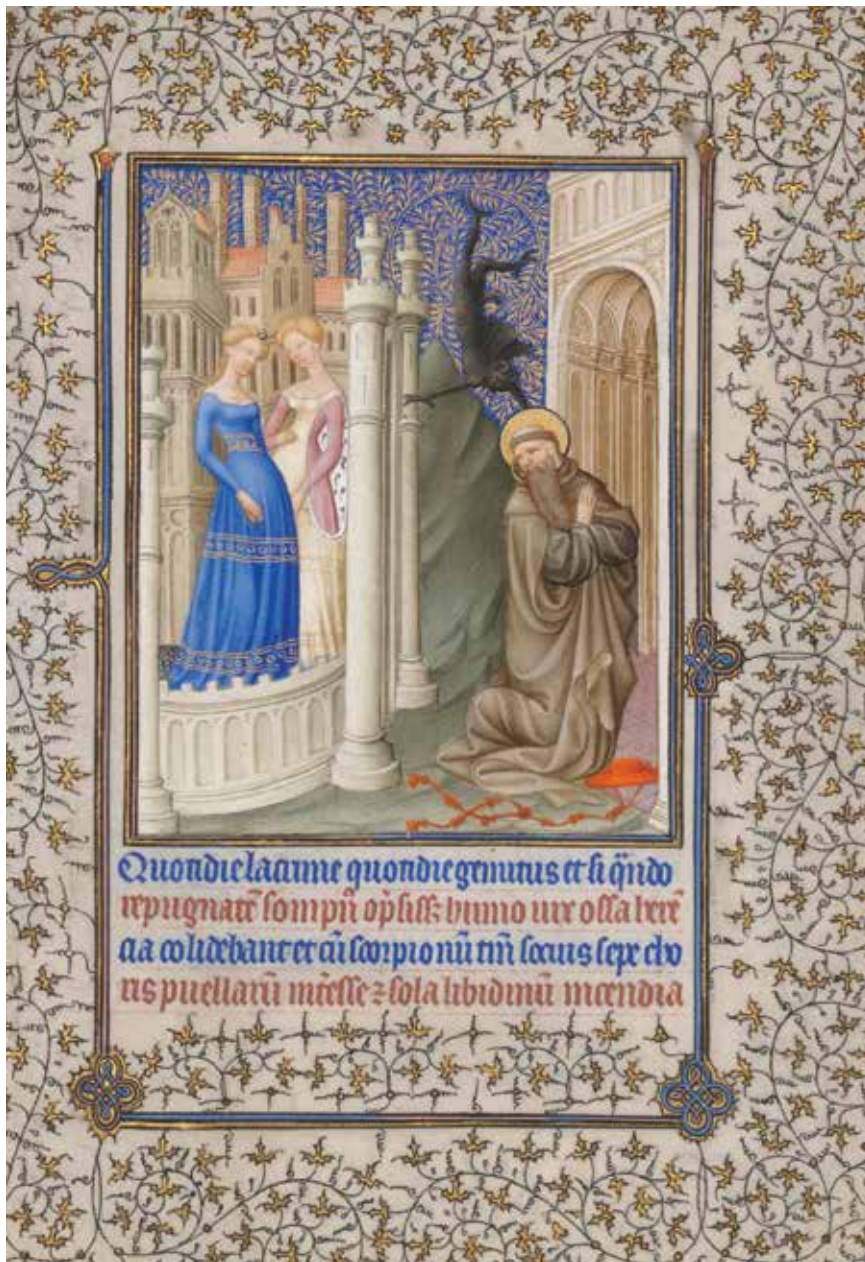 Quotidie lacrime quotidie gemitus et si qn̄do
repugnatē sompn̄ op̄siss; humo uix ossa herē
cia colidebant et cū scorpionū tm̄ socius sepe cho
ris puellarū int̄essē ⁊ sola libidinū incendia